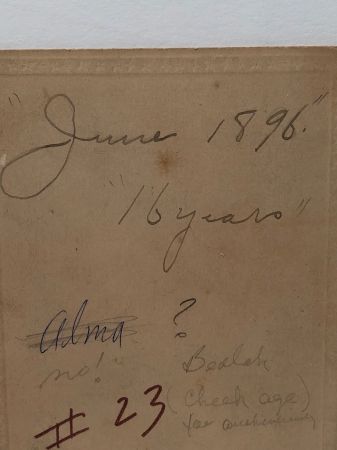 "June 1896."
"16 years"
Alma ?
no! Beulah
# 23 (check age)
for